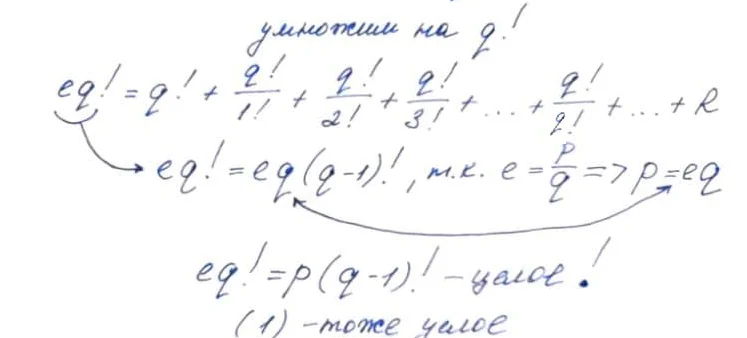 умножим на q!
eq! = q! + q!/1! + q!/2! + q!/3! + ... + q!/q! + ... + R
eq! = eq(q-1)!, т.к. e = p/q => p=eq
eq! = p(q-1)! - целое!
(1) - тоже целое